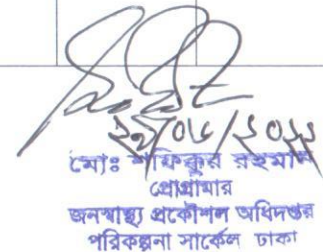 মোঃ শফিকুর রহমান
প্রোগ্রামার
জনস্বাস্থ্য প্রকৌশল অধিদপ্তর
পরিকল্পনা সার্কেল ঢাকা